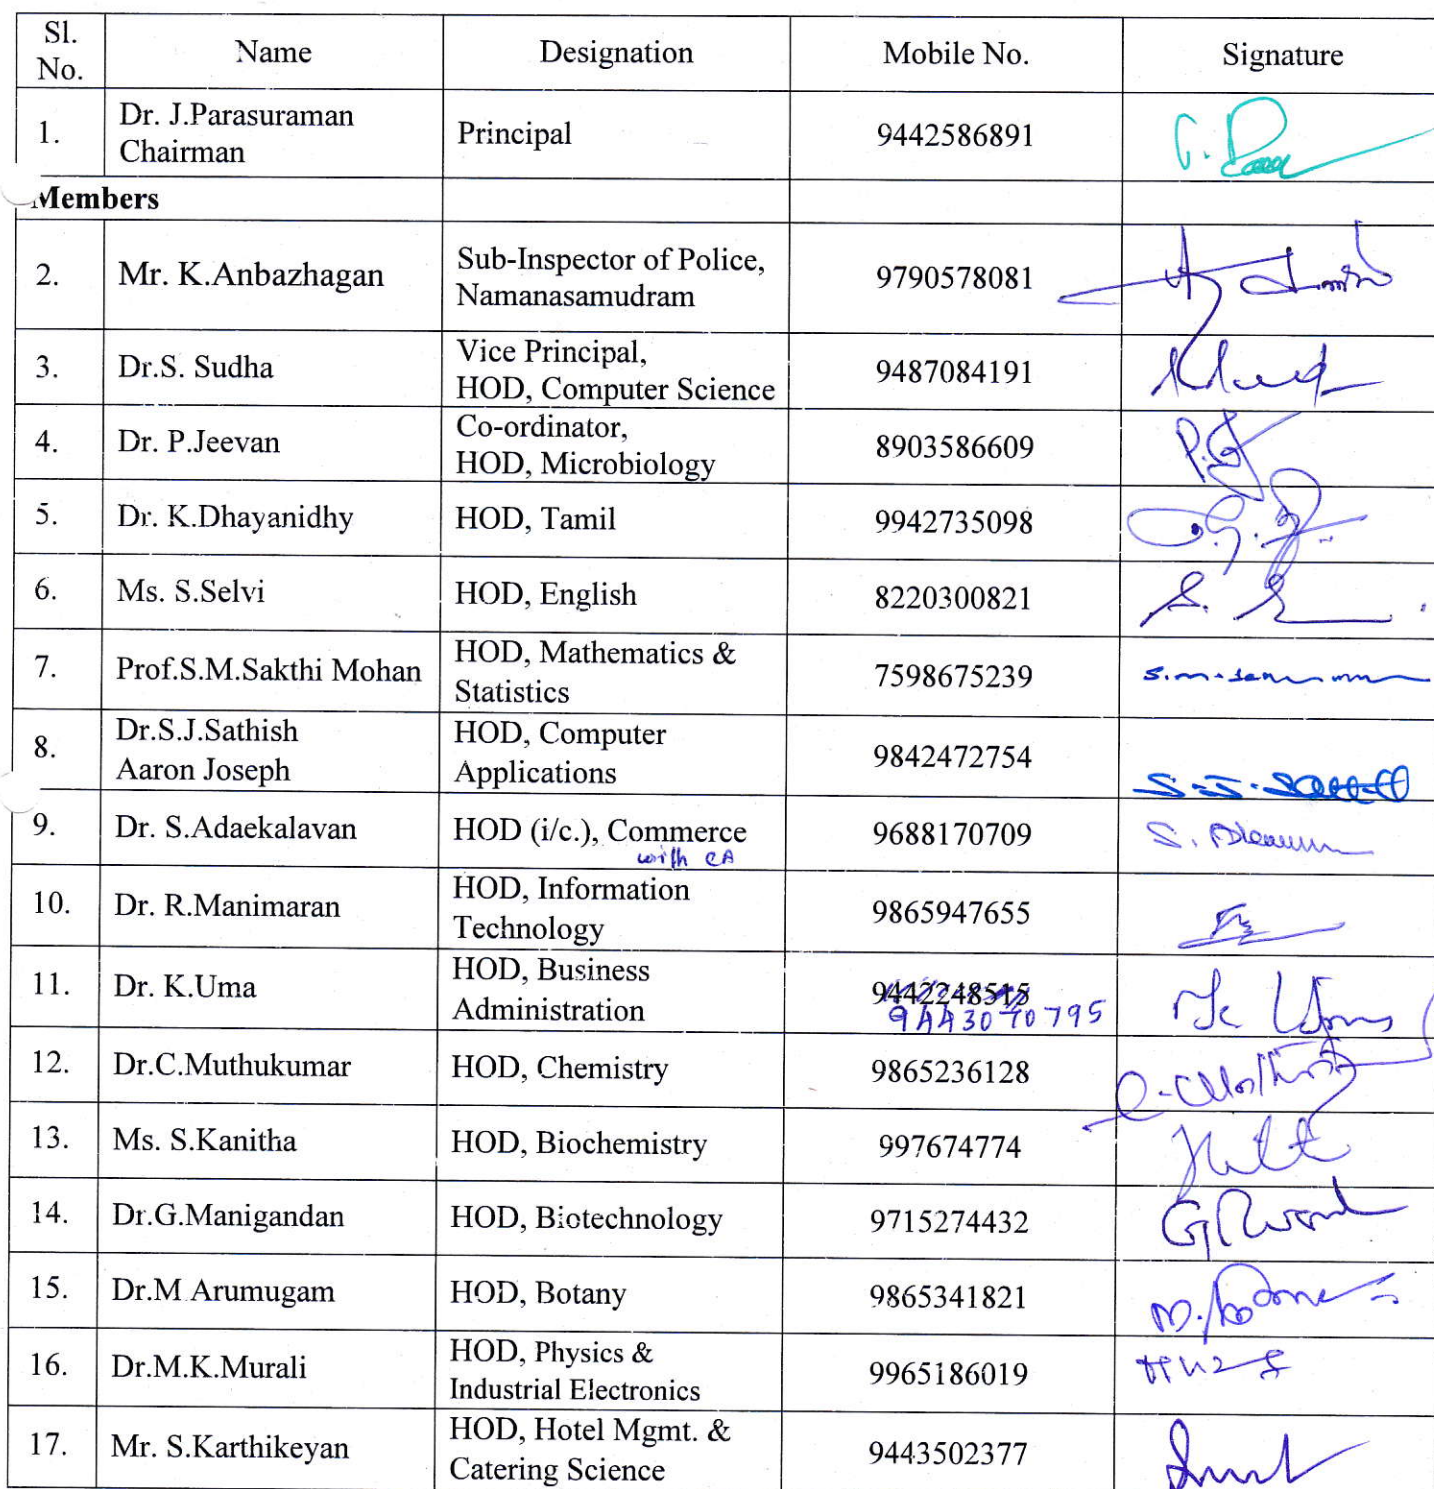 Sl. No. Name Designation Mobile No. Signature
1. Dr. J.Parasuraman Chairman Principal 9442586891
Members
2. Mr. K.Anbazhagan Sub-Inspector of Police, Namanasamudram 9790578081
3. Dr.S. Sudha Vice Principal, HOD, Computer Science 9487084191
4. Dr. P.Jeevan Co-ordinator, HOD, Microbiology 8903586609
5. Dr. K.Dhayanidhy HOD, Tamil 9942735098
6. Ms. S.Selvi HOD, English 8220300821
7. Prof.S.M.Sakthi Mohan HOD, Mathematics & Statistics 7598675239
8. Dr.S.J.Sathish Aaron Joseph HOD, Computer Applications 9842472754
9. Dr. S.Adaekalavan HOD (i/c.), Commerce with CA 9688170709
10. Dr. R.Manimaran HOD, Information Technology 9865947655
11. Dr. K.Uma HOD, Business Administration 9442248515 9443070795
12. Dr.C.Muthukumar HOD, Chemistry 9865236128
13. Ms. S.Kanitha HOD, Biochemistry 997674774
14. Dr.G.Manigandan HOD, Biotechnology 9715274432
15. Dr.M.Arumugam HOD, Botany 9865341821
16. Dr.M.K.Murali HOD, Physics & Industrial Electronics 9965186019
17. Mr. S.Karthikeyan HOD, Hotel Mgmt. & Catering Science 9443502377